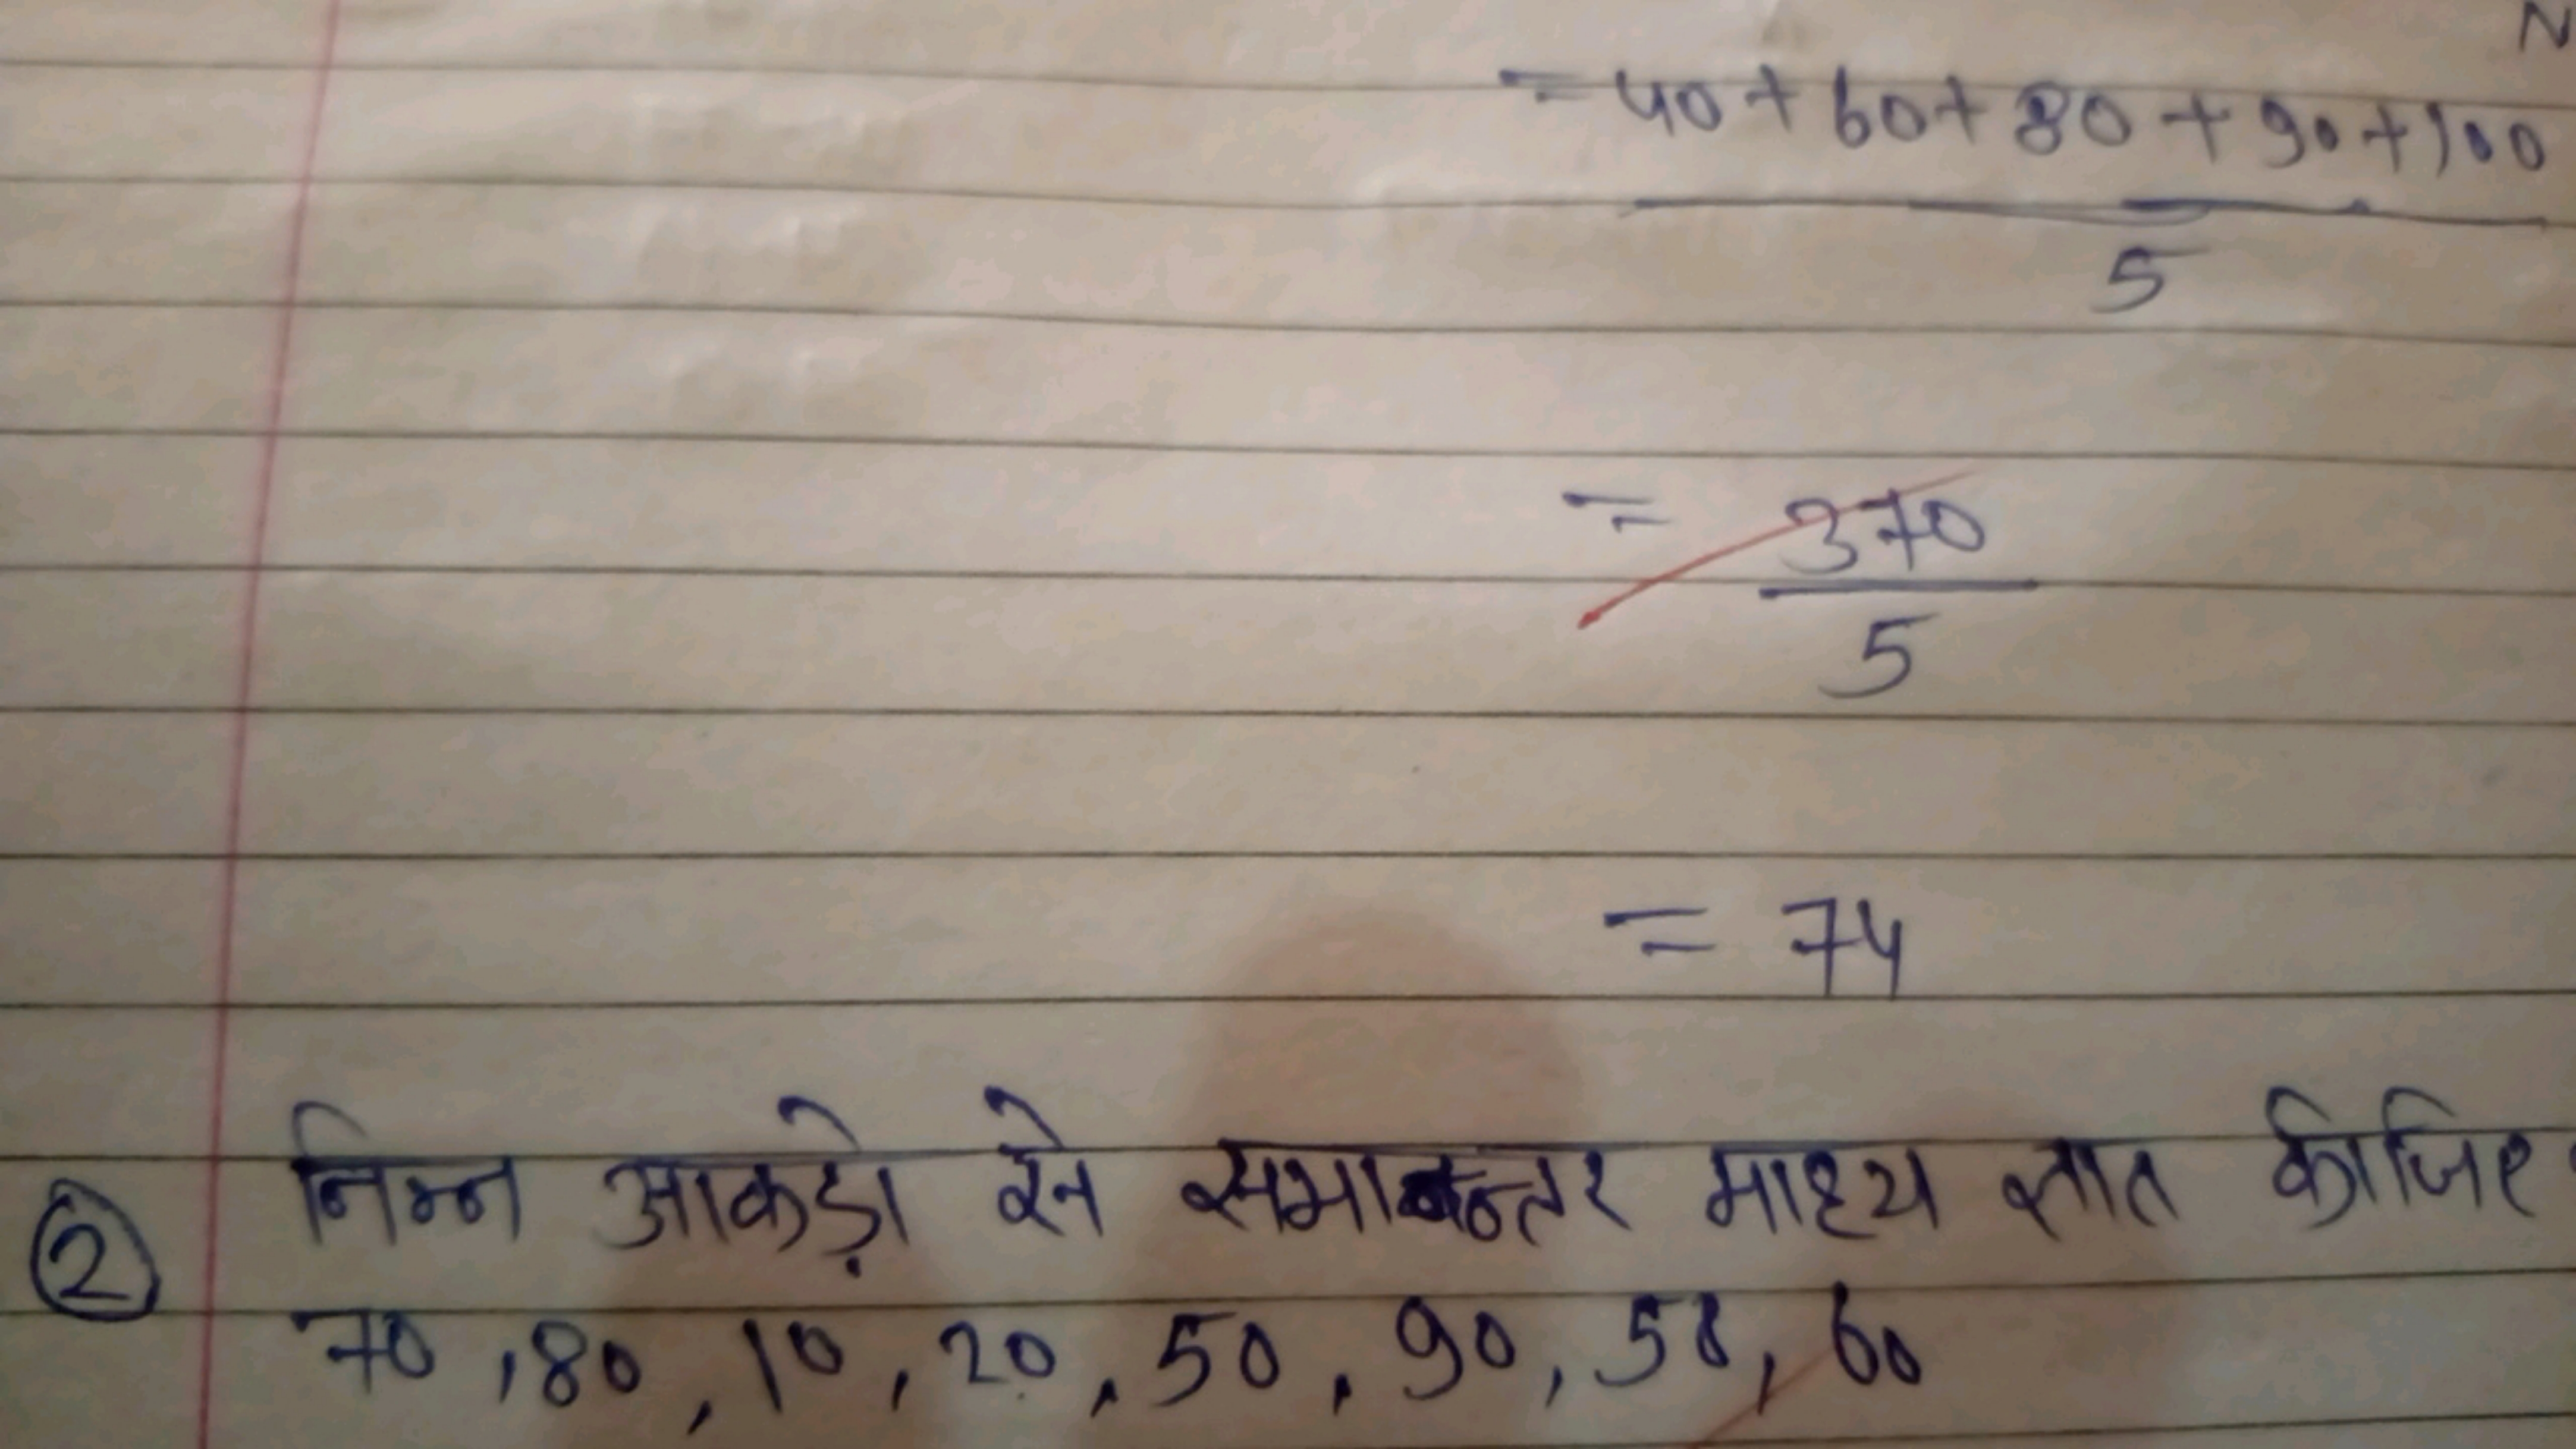 N
= 40 + 60 + 80 + 90 + 100
5
= 370
5
= 74
② निम्न आकड़ो से समान्तर माध्य ज्ञात कीजिए
70 , 80 , 10 , 20 , 50 , 90 , 58 , 60